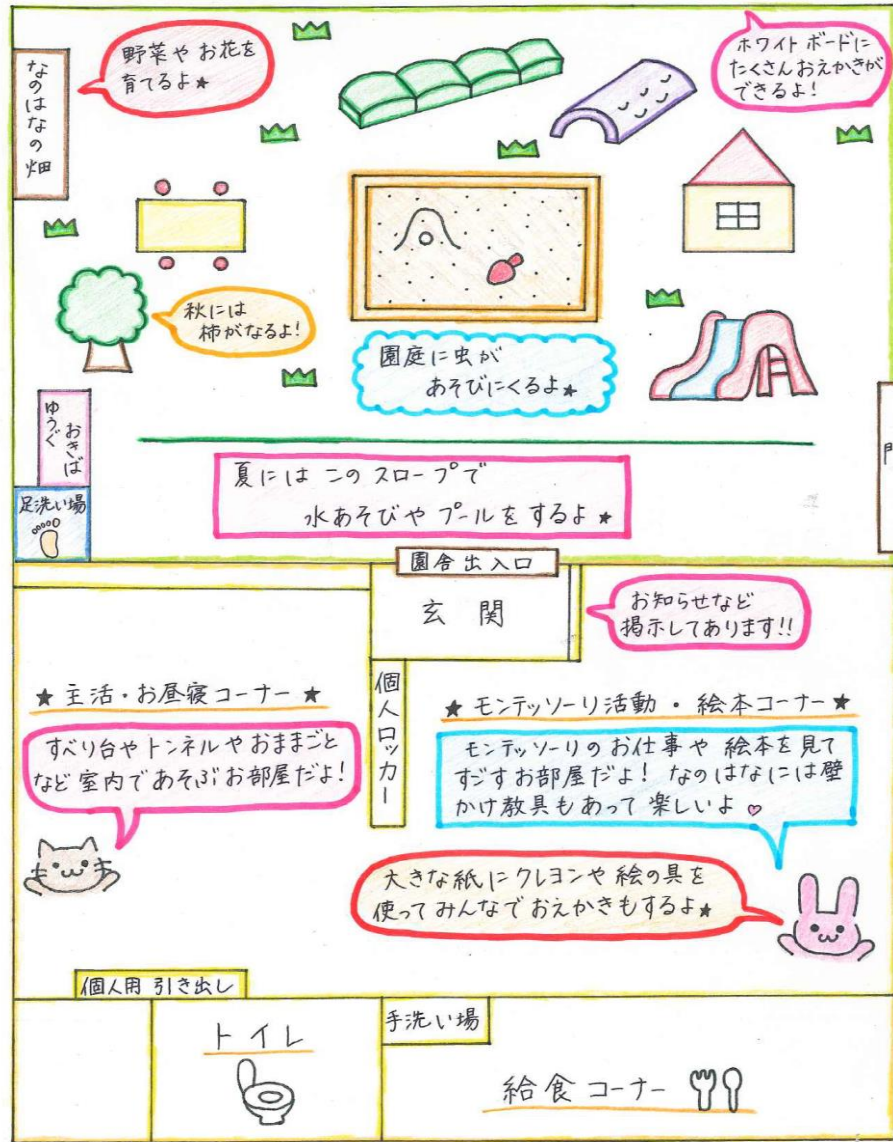 なのはなの畑
野菜や お花を
育てるよ★
ホワイトボードに
たくさんおえかきが
できるよ!
秋には
柿がなるよ!
園庭に虫が
あそびにくるよ★
ゆうぐ
おきば
門
足洗い場
夏には このスロープで
水あそびや プールを するよ★
園舎出入口
玄関
お知らせなど
掲示してあります!!
個人ロッカー
★主活・お昼寝コーナー★
すべり台や トンネルや おままごと
など 室内で あそぶ お部屋だよ!
★モンテッソーリ活動・絵本コーナー★
モンテッソーリの お仕事や 絵本を見て
すごす お部屋だよ! なのはなには壁
かけ教具もあって 楽しいよ♡
大きな紙に クレヨンや 絵の具を
使って みんなで おえかきもするよ★
個人用 引き出し
トイレ
手洗い場
給食コーナー